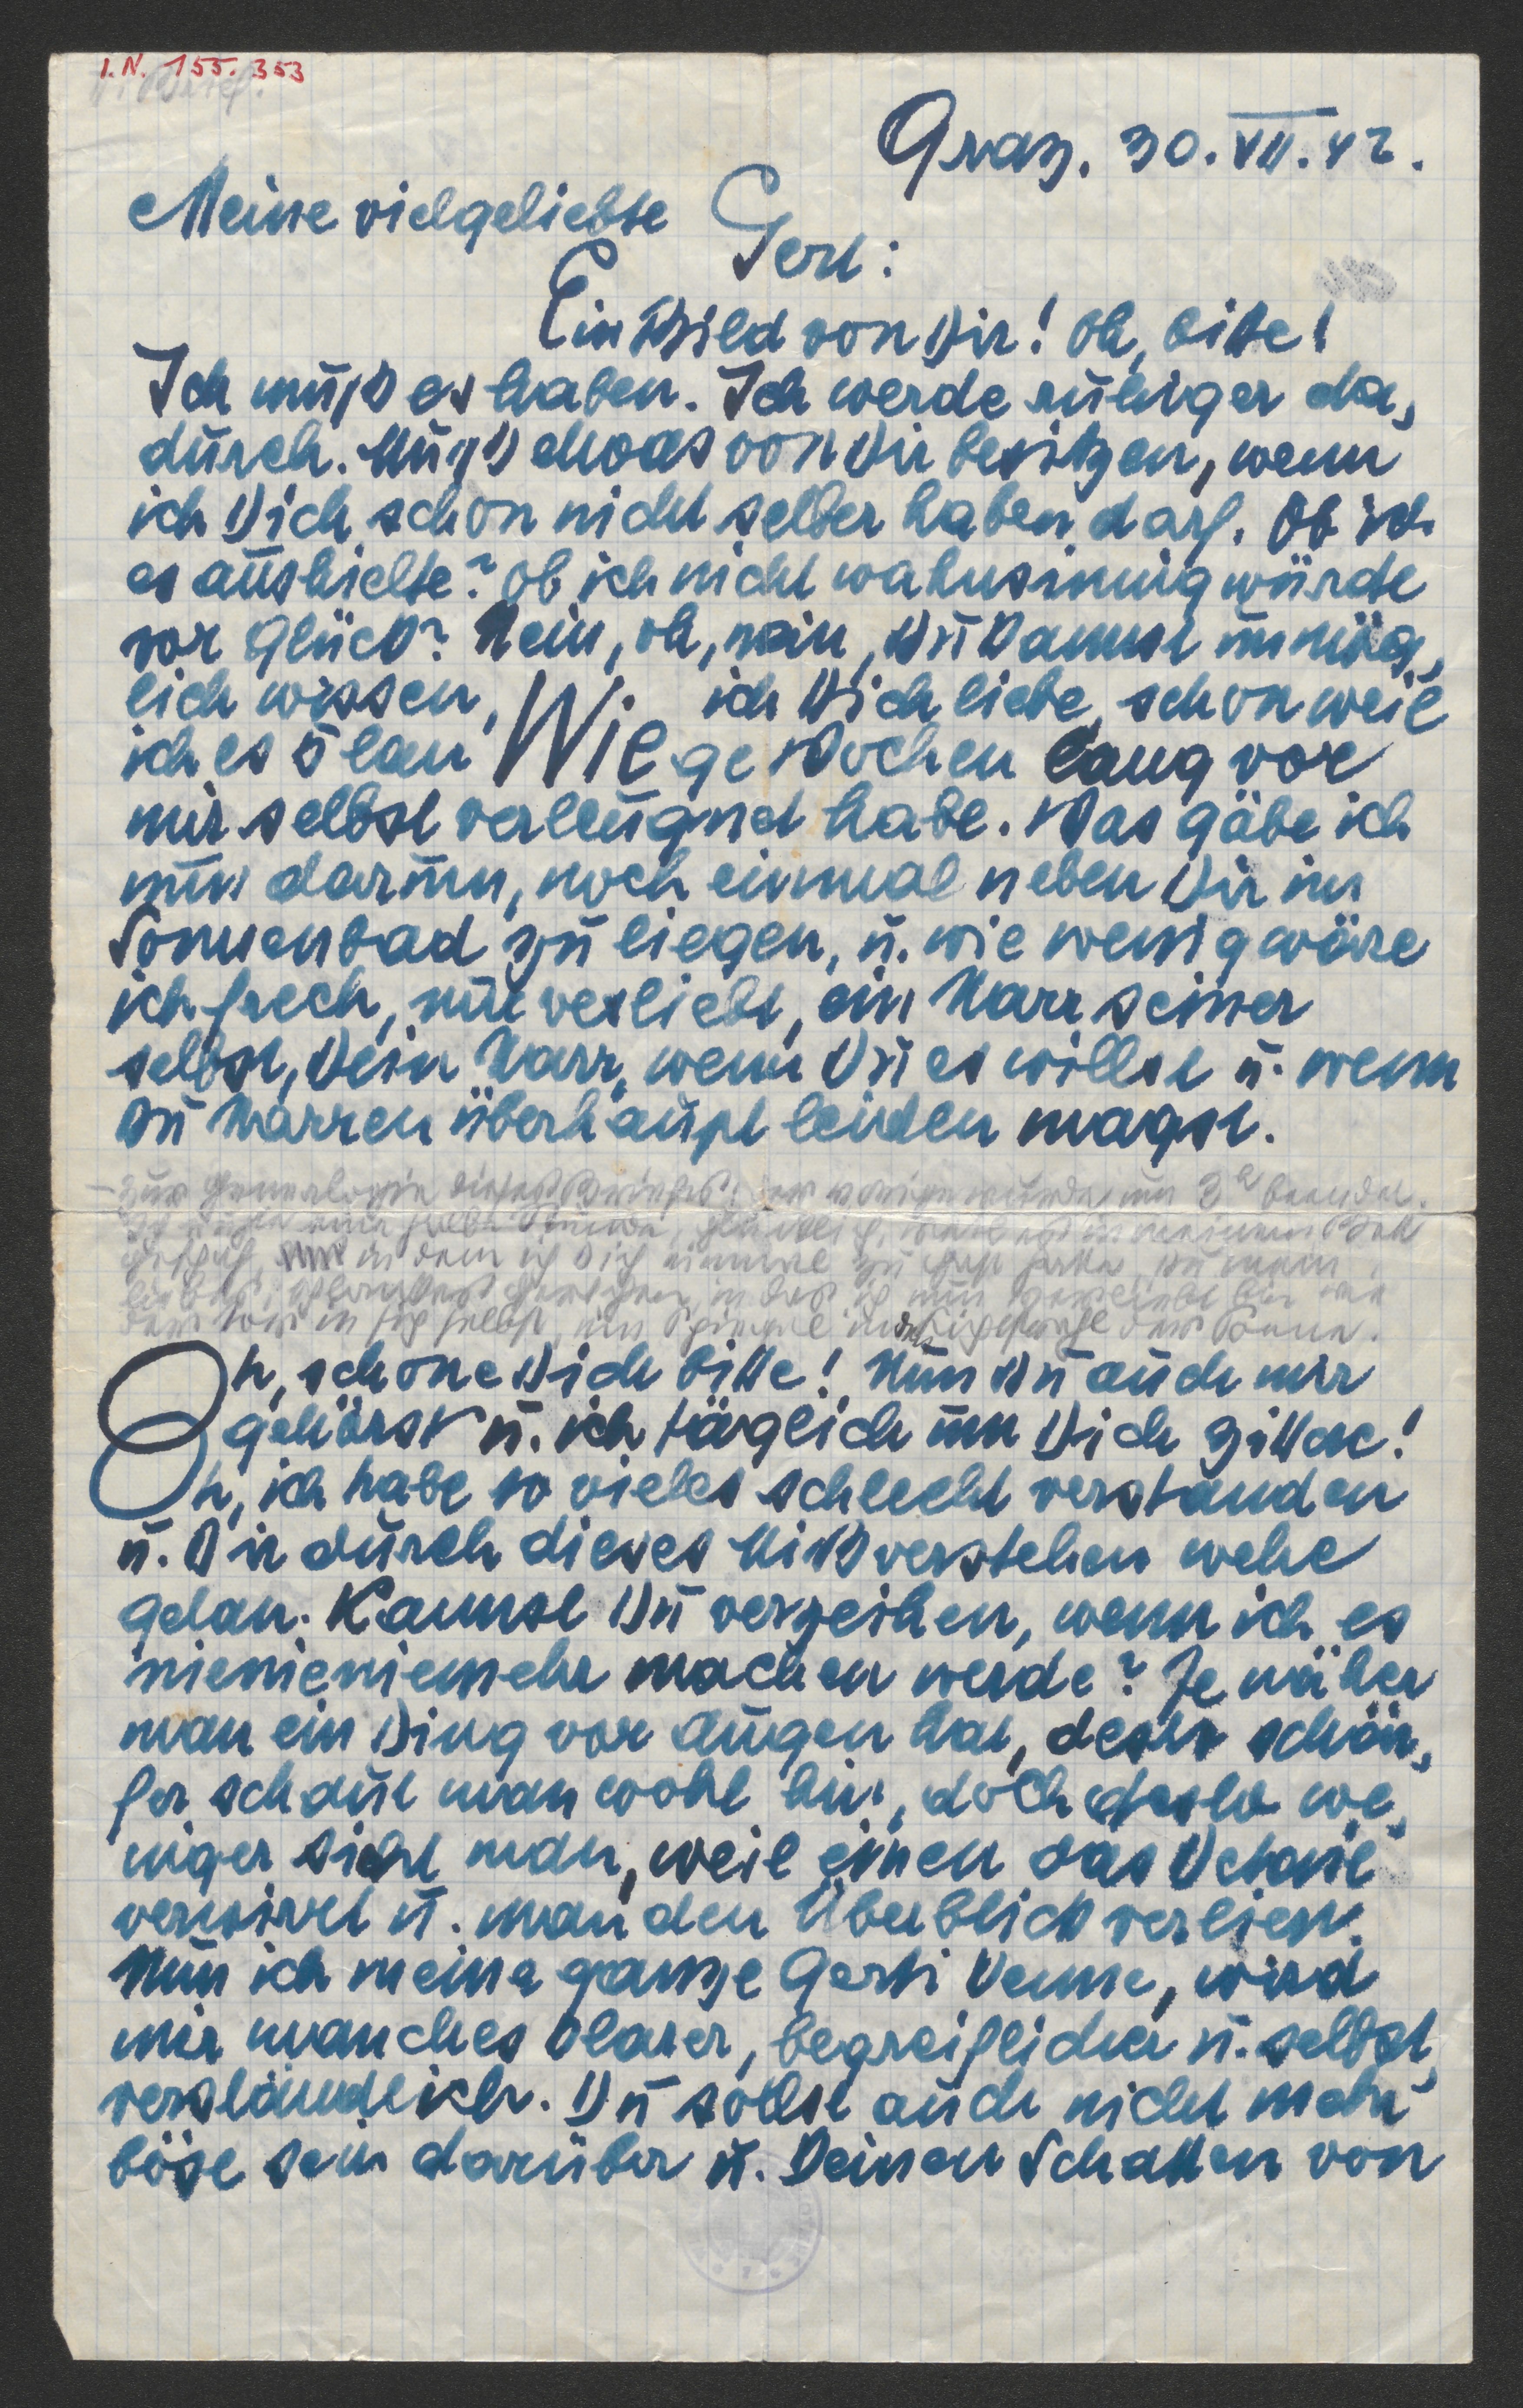 I.N. 155.353
Graz. 30. VII. 42.
Meine vielgeliebte
Gert:
Ein Bild von Dir! Oh, bitte!
Ich muß es haben. Ich werde ruhiger da,
durch. Muß etwas von Dir besitzen, wenn
ich Dich schon nicht selber haben darf. Ob ich
es aushielte? Ob ich nicht wahnsinnig würde
vor Glück? Nein, oh, nein, Du kannst unmög,
lich wissen, Wie ich Dich liebe, schon weil
ich es ō lan ge Wochen lang vor
mir selbst verleugnet habe. Was gäbe ich
nun darum, noch einmal neben Dir im
Sonnenbad zu liegen, u. wie wenig wäre
ich frech, nur verliebt, ein Narr seiner
selbst, Dein Narr, wenn Du es willst u. wenn
Du Narren überhaupt leiden magst.
– Zur Genealogie dieses Briefes: der vorige wurde um 3h beendet.
in dem ich Dich einmal zu Gast hatte, Du mein
in das ich nun verliebt bin wie
der in sich selbst, im Spiegel
Oh, schone Dich bitte! Nun Du auch mir
gehörst u. ich täglich um Dich zittre!
Oh, ich habe so vieles schlecht verstanden
u. Dir durch dieses Mißverstehen wehe
getan. Kannst Du verzeihen, wenn ich es
nienieniemehr machen werde? Je näher
man ein Ding vor Augen hat, desto schär,
fer schaut man wohl hin, doch desto we,
niger sieht man, weil einen das Detail
verwirrt u. man den Überblick verliert.
Nun ich meine ganze Gerti kenne, wird
mir manches klarer, begreiflicher u. selbst,
verständlich. Du sollst auch nicht mehr
böse sein darüber u. Deinen Schatten von